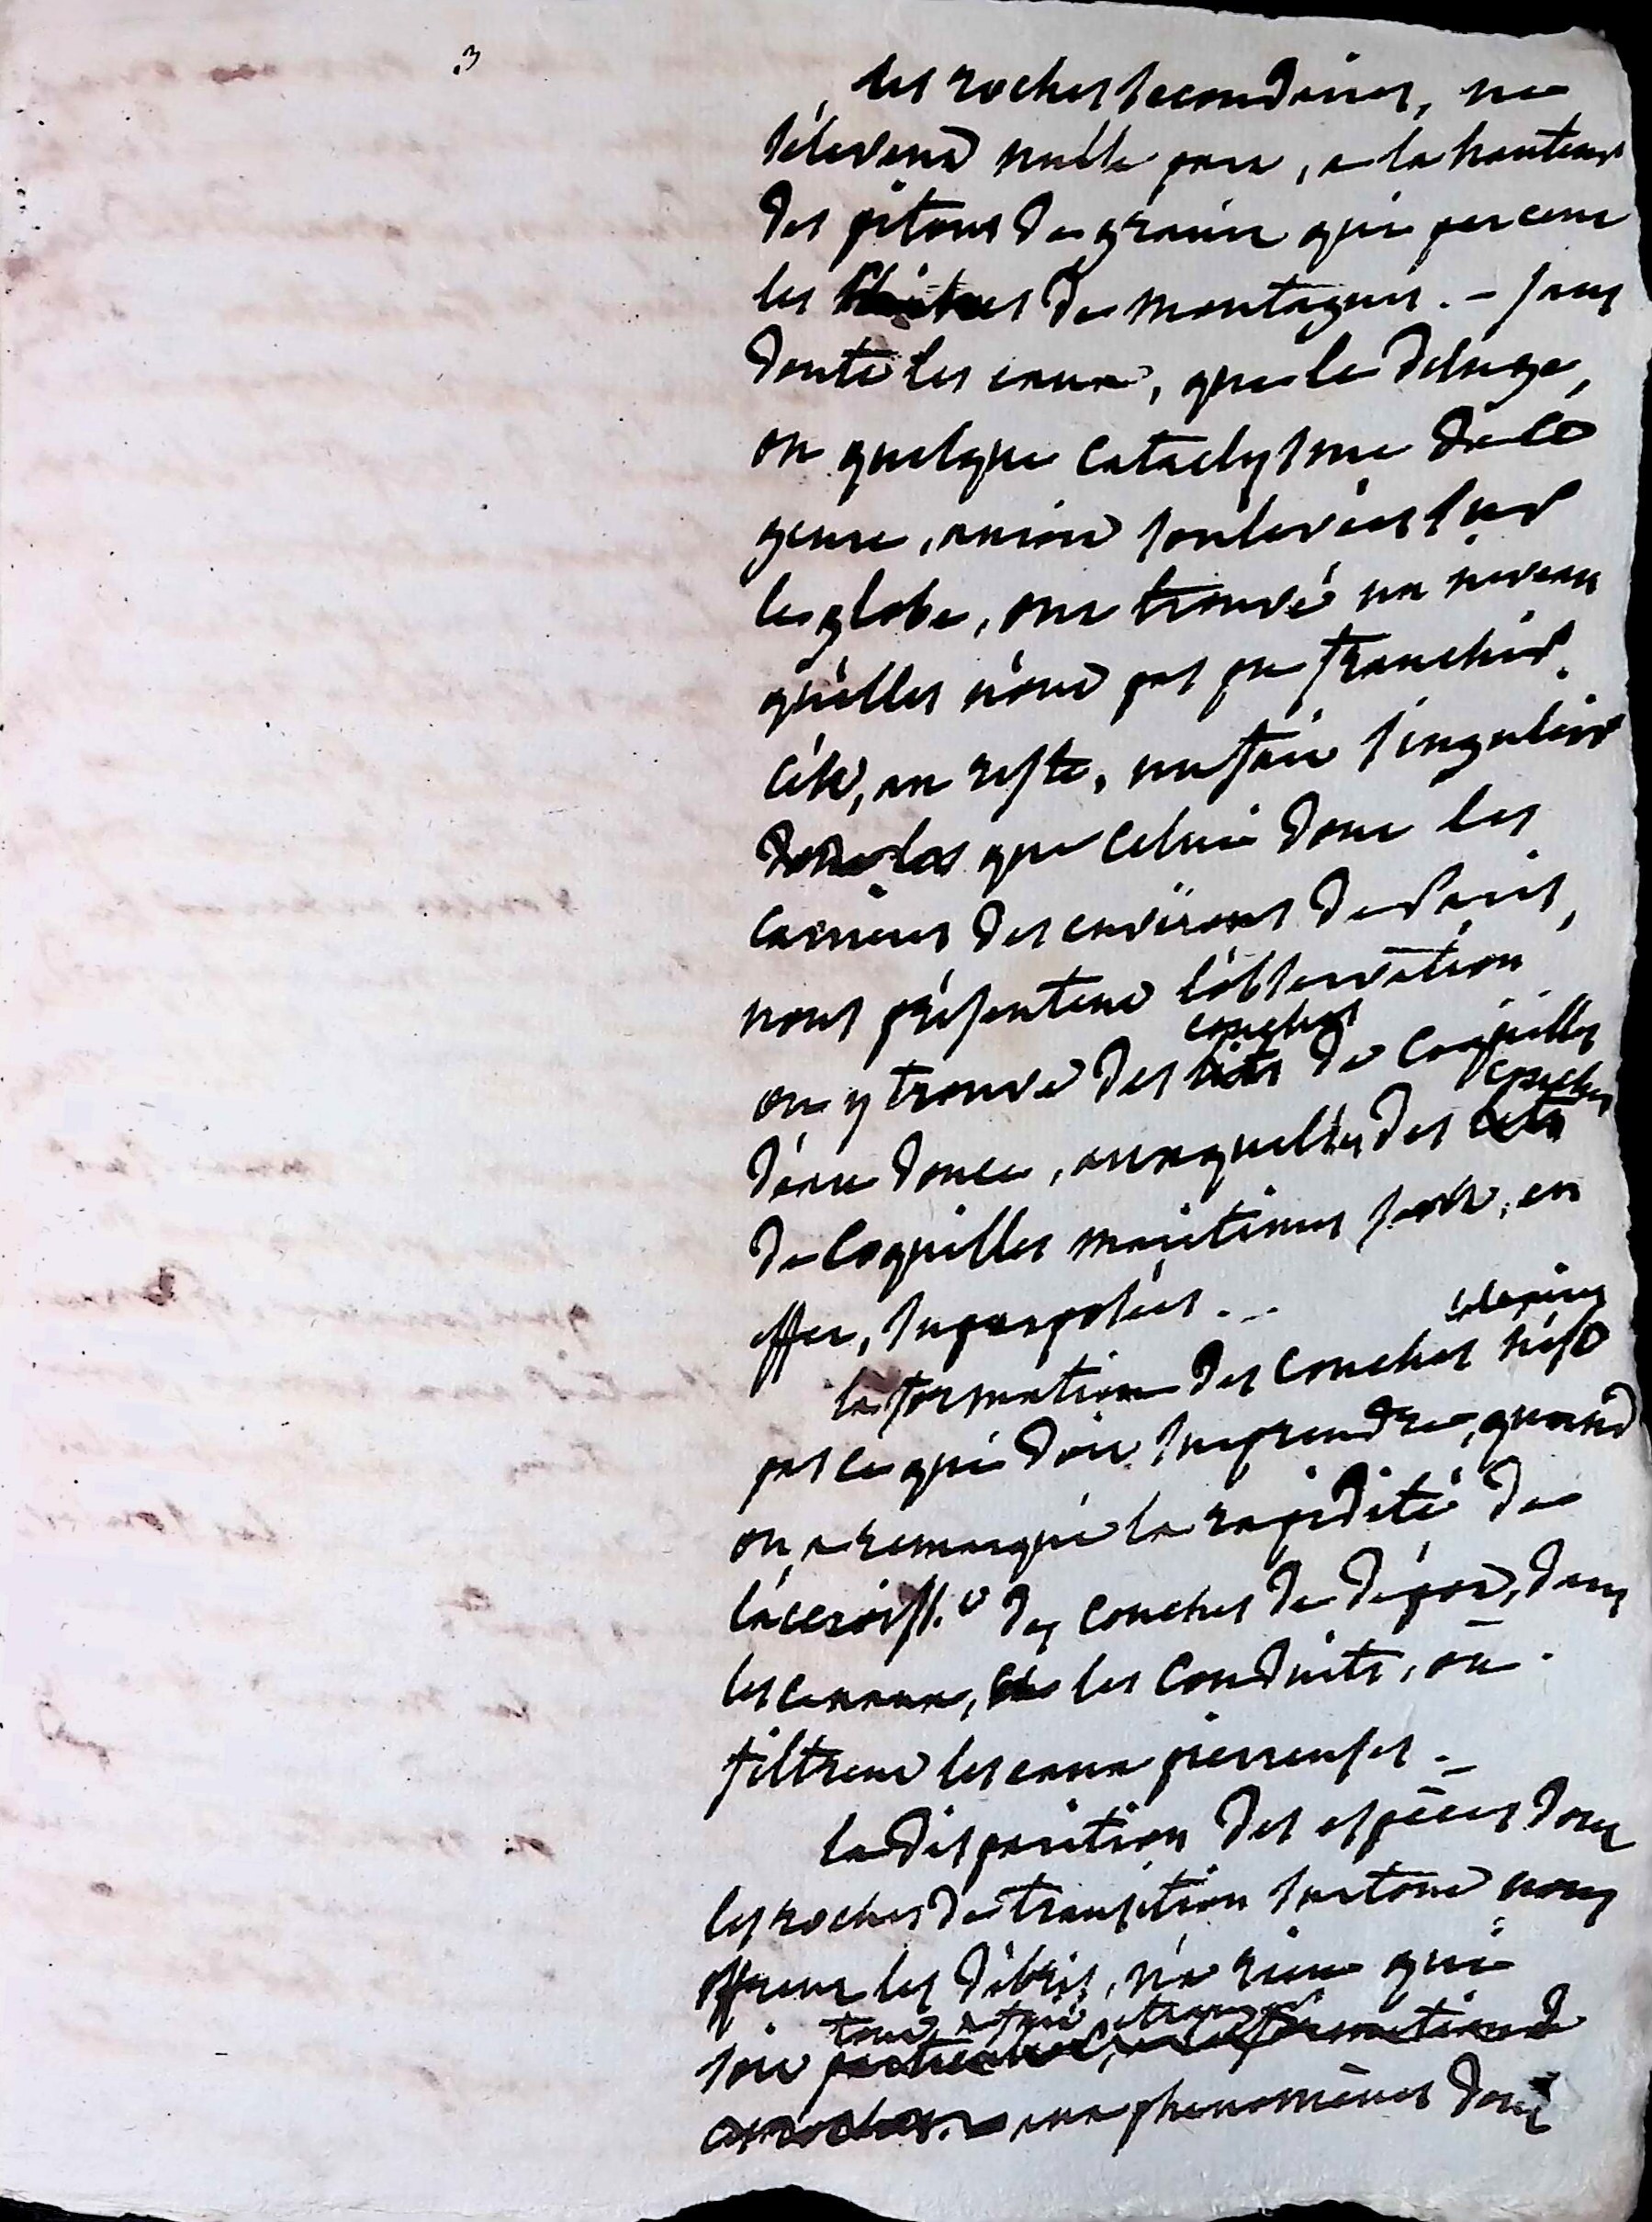 3
les roches secondaires, ne
s'élevent nulle part, a la hauteur
des pitons de granit qui percent
les de montagnes. – sans
doute les eaux, que le deluge,
ou quelque cataclysme de ce
genre, auroit soulevées sur
le globe, ont trouvé un niveau
qu'elles n'ont pas pu franchir.
c'est, au reste, un fait singulier
que celui dont les
carrieres des environs de Paris,
nous présentent l'observation
couches
on y trouve des lits de coquilles
couches
d'eau douce, auxquelles des lits
de coquilles maritimes sont, en
effet, superposées. –
la formation des couches n'est
pas ce qui doit surprendre, quand
on a remarqué la rapidité de
l'accroiss.t des couches de dépot, dans
les canaux, les conduits, où
filtrent les eaux pierreuses. –
la disparition des especes dont
les roches de transition surtout nous
offrent les débris, n'a rien qui
tout a fait etranger
soit particulier, a la formation de
ces roches. aux phenomènes dont